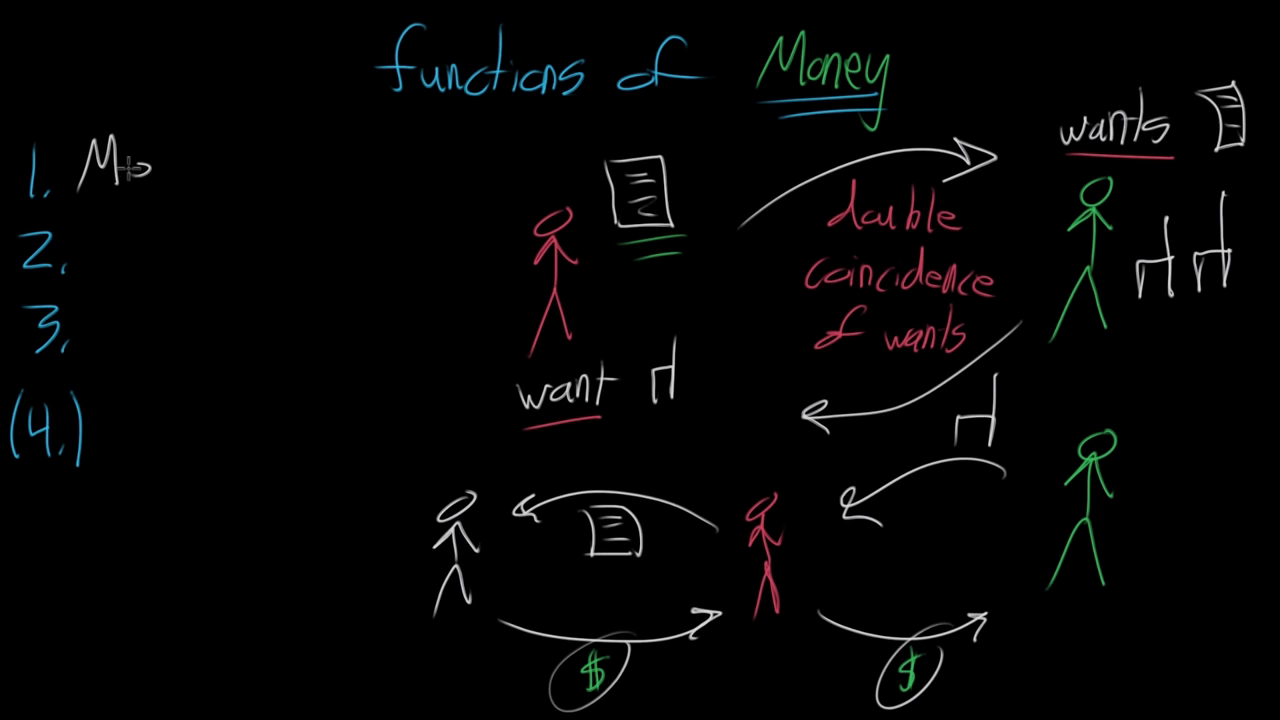 functions of Money
wants
1. Mo
2.
double
coincidence
of wants
3.
want
(4.)
$
$